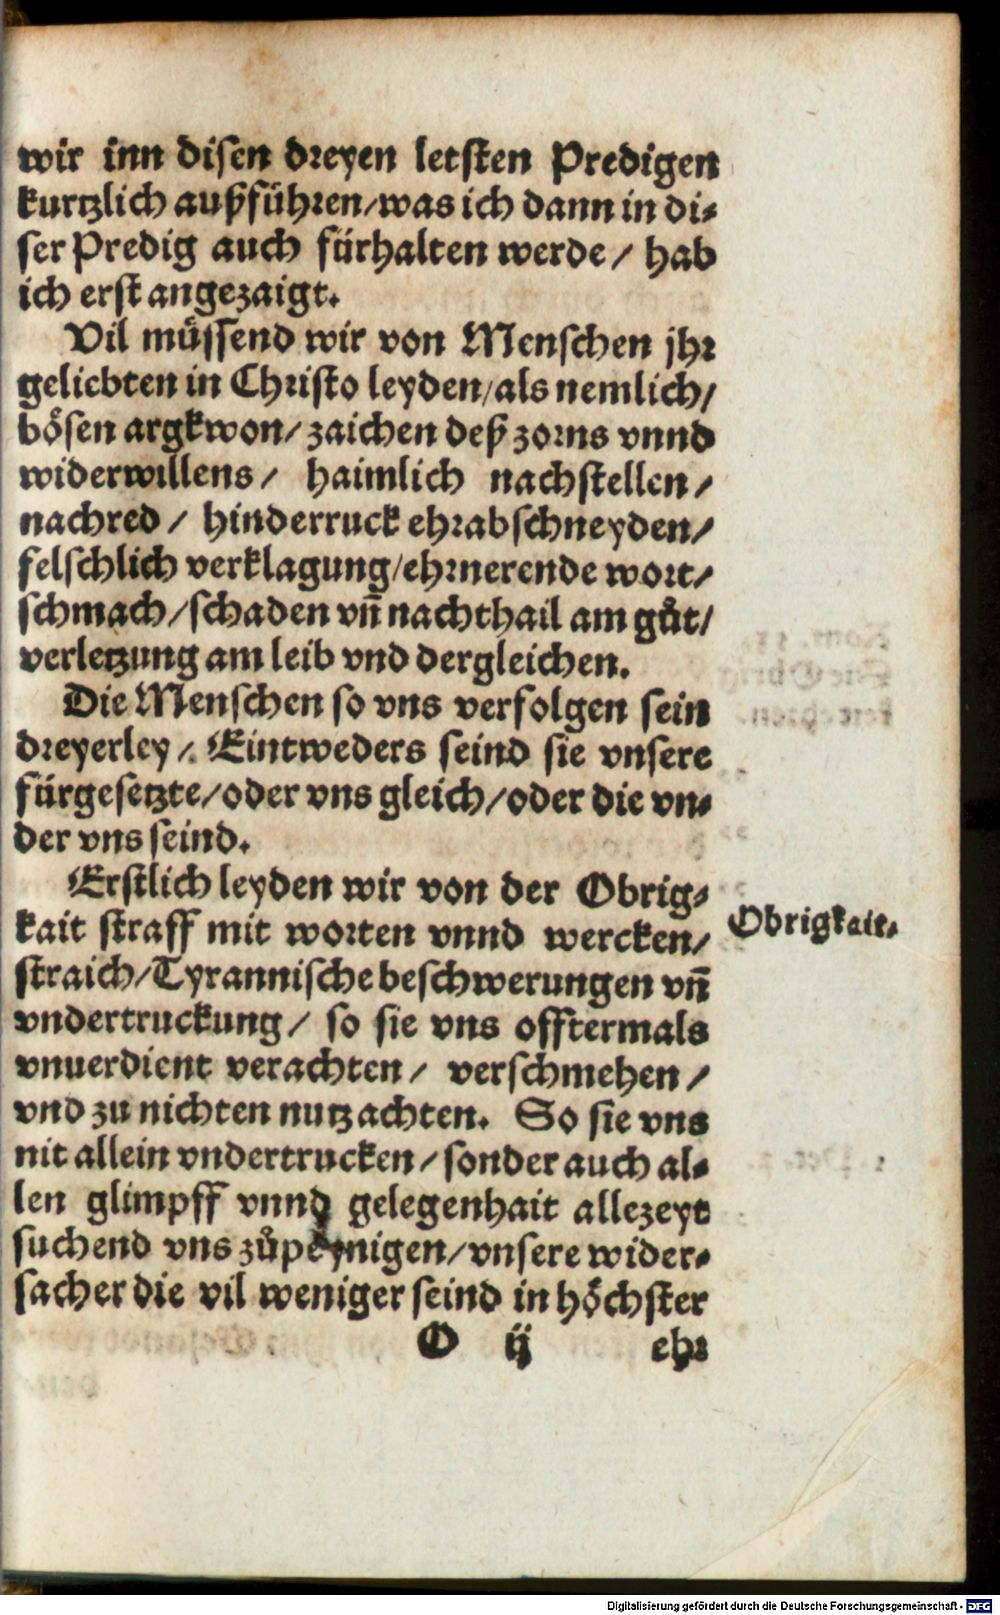 wir inn disen dreyen letsten Predigen
kurtzlich außführen/was ich dann in di-
ser Predig auch fürhalten werde/ hab
ich erst angezaigt.
Vil müssend wir von Menschen jhr
geliebten in Christo leyden/als nemlich/
bösen argkwon/zaichen deß zorns vnnd
widerwillens/ haimlich nachstellen/
nachred/ hinderruck ehrabschneyden/
felschlich verklagung/ehrnerende wort/
schmach/schaden vn̄ nachthail am gůt/
verletzung am leib vnd dergleichen.
Die Menschen so vns verfolgen sein
dreyerley/. Eintweders seind sie vnsere
fürgesetzte/oder vns gleich/oder die vn-
der vns seind.
Erstlich leyden wir von der Obrig-
kait straff mit worten vnnd wercken/
Obrigkait.
straich/Tyrannische beschwerungen vn̄
vndertruckung/ so sie vns offtermals
vnuerdient verachten/ verschmehen/
vnd zu nichten nutz achten. So sie vns
nit allein vndertrucken/sonder auch al-
len glimpff vnnd gelegenhait allezeyt
suchend vns zůpeynigen/vnsere wider-
sacher die vil weniger seind in höchster
O ij ehr
Digitalisierung gefördert durch die Deutsche Forschungsgemeinschaft - DFG